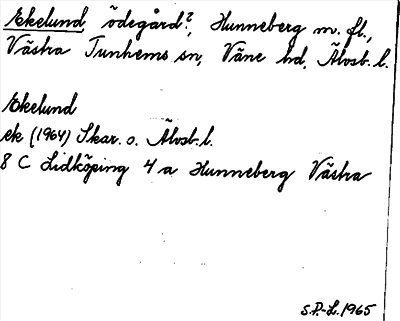 Ekelund ödegård?, Hunneberg m. fl.,
Västra Tunhems sn, Väne hd, Älvsb. l.
Ekelund
ek (1964) Skar. o. Älvsb. l.
8 C Lidköping 4 a Hunneberg Västra
S.P.-L. 1965